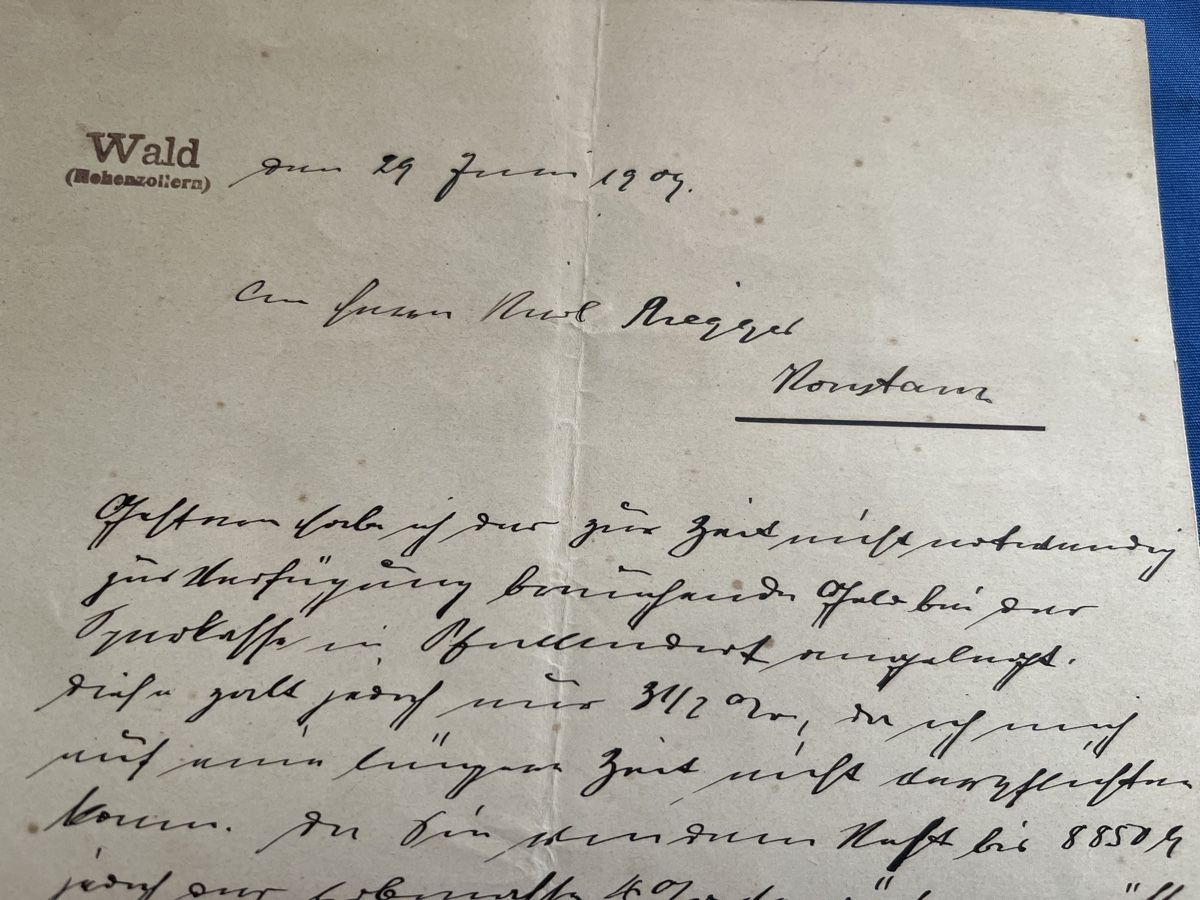 Wald
(Hohenzollern)
den 29 Juni 1909.
An Herrn Karl Riegger
Konstanz
Gestern habe ich das zur Zeit nicht notwendig
zur Verfügung brauchende Geld bei der
Sparkasse in Pfullendorf angelegt.
diese zalt jedoch nur 3 1/2 %, da ich mich
auf eine längere Zeit nicht verpflichten
kann. da Sie von dem Rest bis 8850 M
jedoch der 4 %